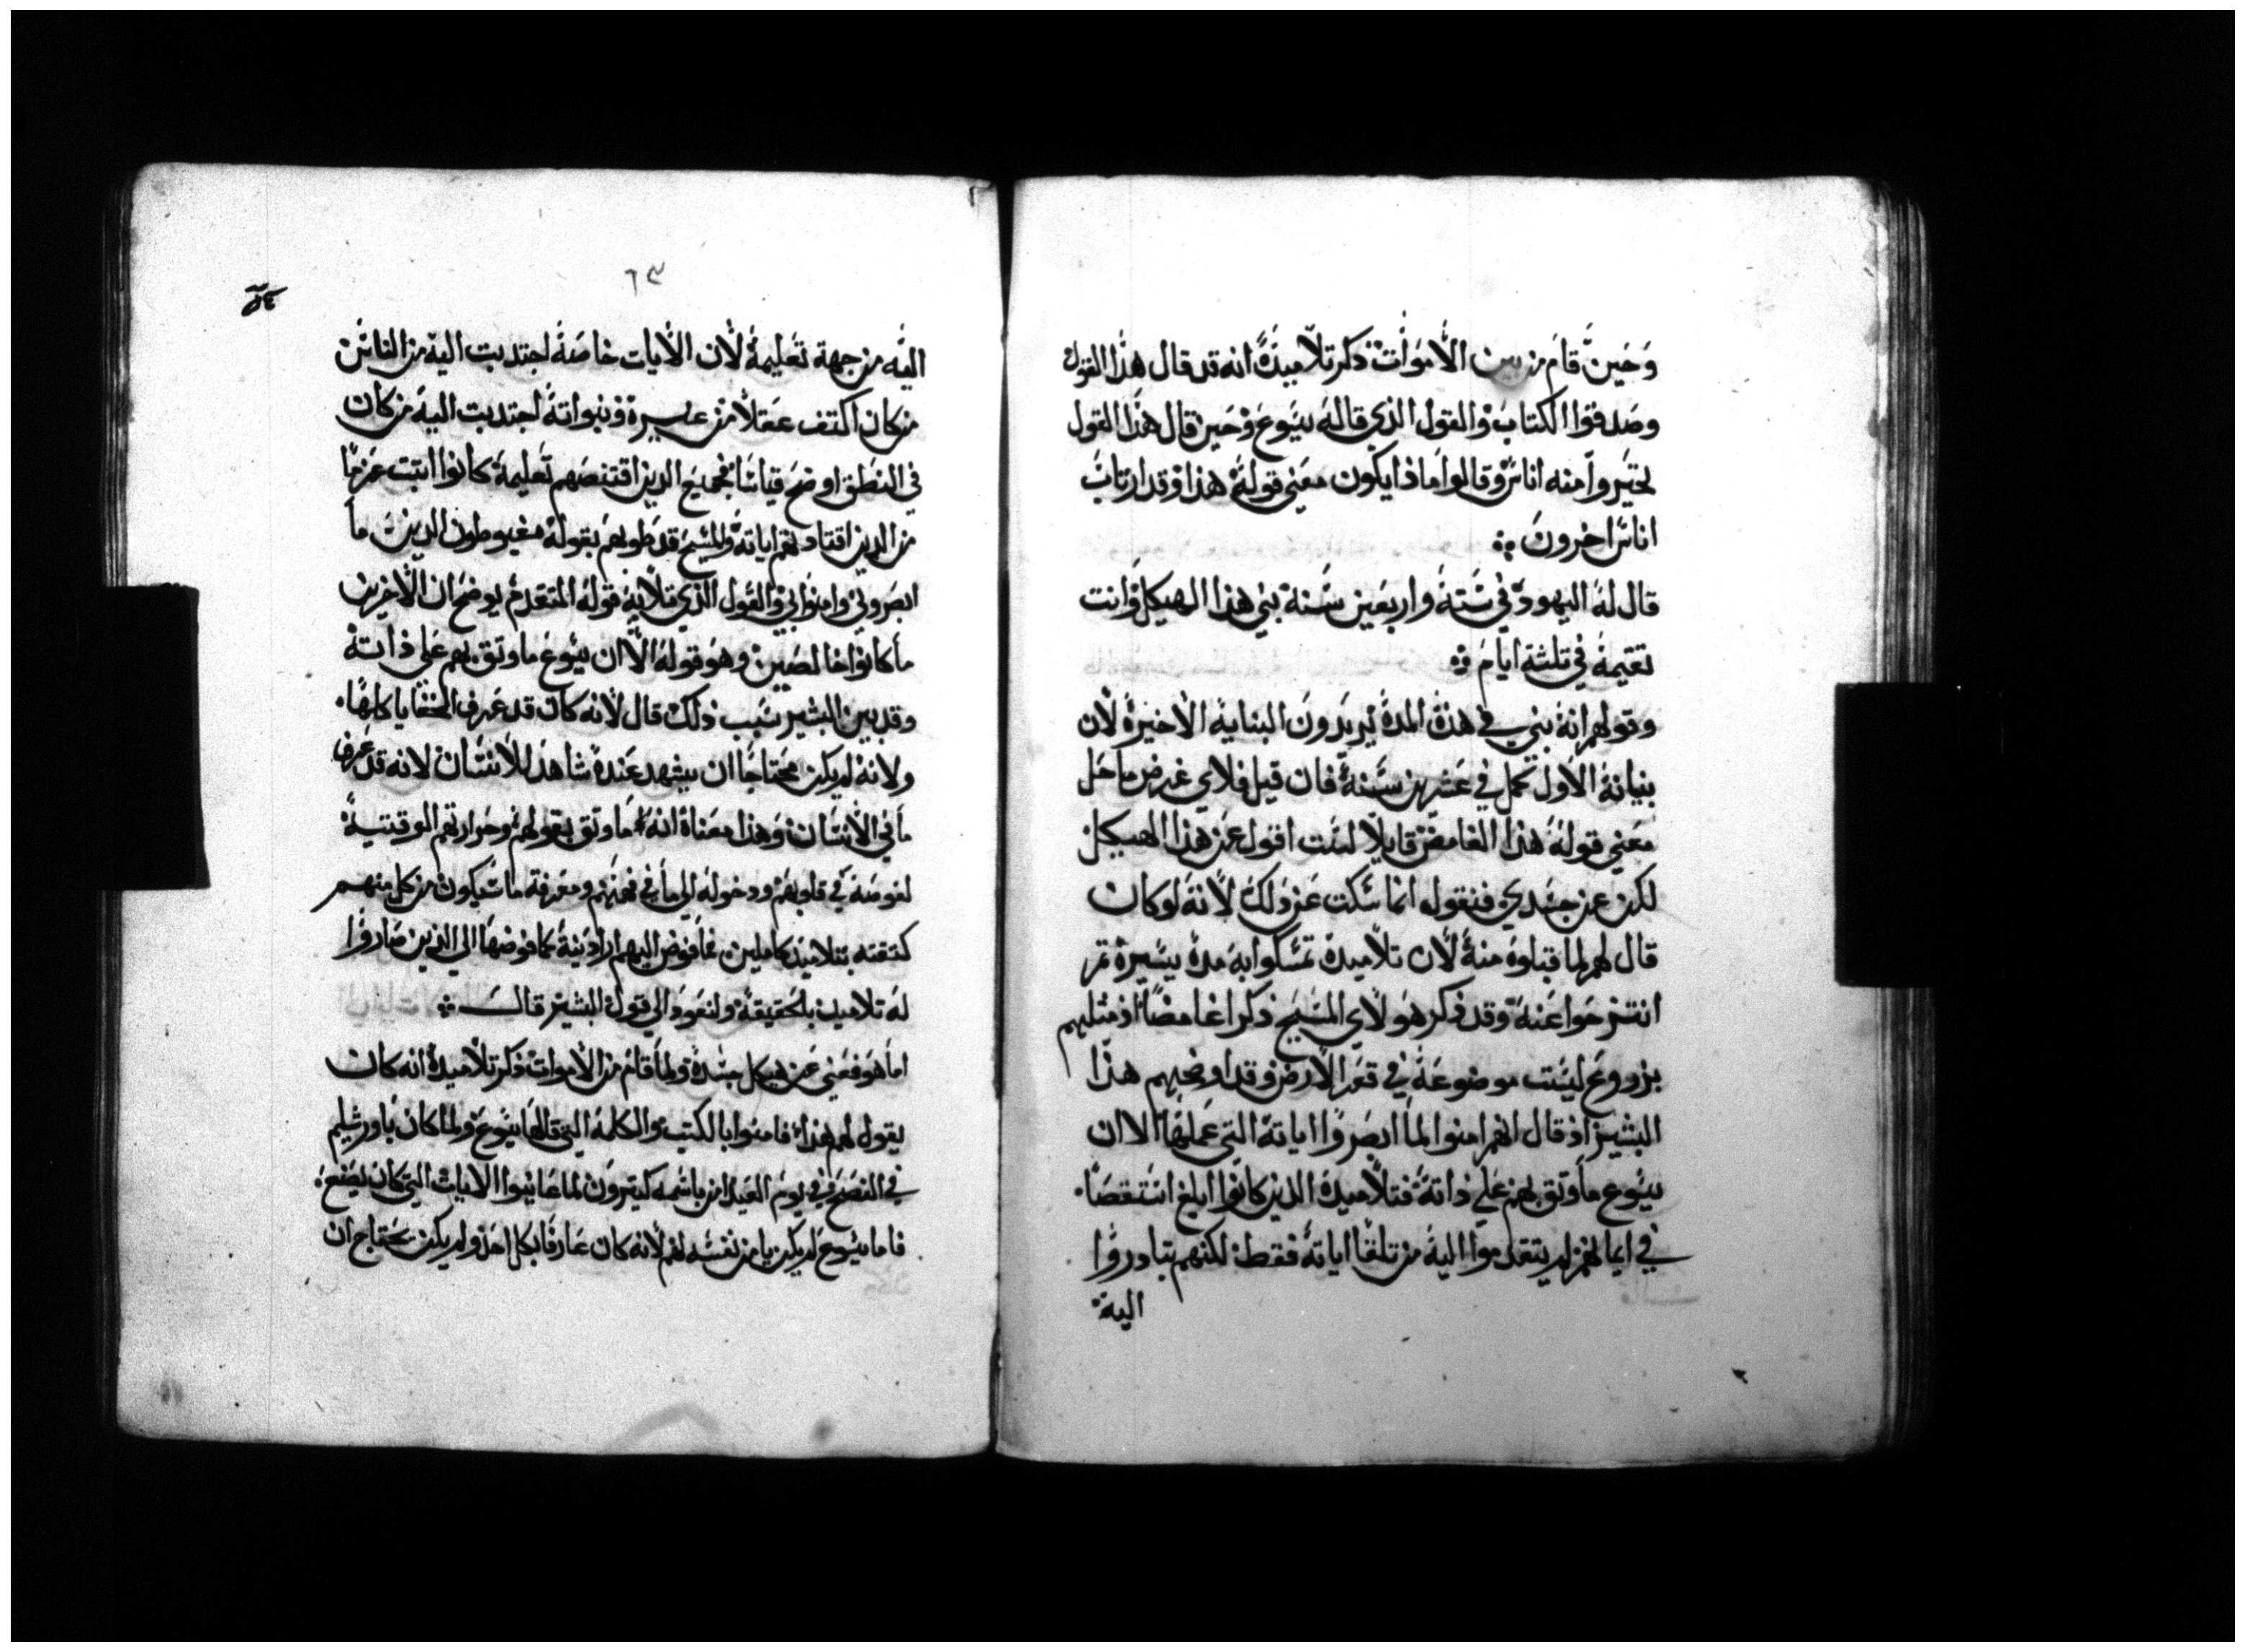 وحين قام من بين الاموات ذكر تلاميذه انه قد قال هذا القول
وصدقوا الكتاب والقول الذي قاله يسوع وحين قال هذا القول
تحيروا منه اناس وقالوا ماذا يكون معني قوله هذا وقد ارتاب
اناس اخرون
قال له اليهود في ستة واربعين سنة بني هذا الهيكل وانت
تقيمه في ثلثة ايام
وقولهم انه بني في هذه المدة يريدون البناية الاخيرة لان
بنيانه الاول كمل في عشرين سنة فان قيل فلاي غرض ما حل
معني قوله هذا الغامض قايلا لست اقول عن هذا الهيكل
لكن عن جسدي فنقول انما سكت عن ذلك لانه لو كان
قال لهم لما قبلوه منه لان تلاميذه تمسكوا به مدة يسيرة ثم
انتزحوا عنه وقد ذكر هولاي المسيح ذكرا غامضا اذ مثلهم
بزروع ليست موضوعة في قعر الارض وقد اوضحهم هذا
البشير اذ قال انهم امنوا لما ابصروا اياته التي عملها الا ان
يسوع ما وثق بهم علي ذاته فتلاميذه الذين كانوا ابلغ استقصا
في ايمانهم لم يتقدموا اليه من تلقا اياته فقط لكنهم تبادروا
اليه
٦٣
اليه من جهة تعليمه لان الايات خاصة اجتدبت اليه من الناس
من كان اكثف عقلا من غيره ونبواته اجتدبت اليه من كان
في النطق اوضح قياسا فجميع الدين اقتنصهم تعليمه كانوا اتبت عزما
من الدين اقتادتهم اياته والمسيح قد طوبهم بقوله مغبوطون الدين ما
ابصروني وامنوا بي والقول الذي تلا به قوله المتقدم يوضح ان الاخرين
ما كانوا خالصين وهو قوله الا ان يسوع ما وثق بهم علي ذاته
وقد بين البشير سبب ذلك قال لانه كان قد عرف الخفايا كلها
ولانه لم يكن محتاجا ان يشهد عنده شاهد للانسان لانه قد عرف
ما في الانسان وهذا معناه انه ما وثق بقولهم وحرارتهم الوقتية
لغوصه في قلوبهم ودخوله الي ما في فهمهم ومعرفة ما سيكون من كل منهم
كثقته بتلاميذ كاملين فما فوض اليهم اراديه كما فوضها الي الذين صاروا
له تلاميذ بلحقيقة ولنعود الي قول البشير قال
اما هو فعني عن هيكل جسده ولما قام من الاموات ذكر تلاميذه انه كان
يقول لهم هذا فامنوا بالكتب والكلمة التي قالها يسوع ولما كان باورشليم
في الفصح في يوم العيد امن باسمه كثيرون لما عاينوا الايات التي كان يصنع
فاما يسوع لم يكن يامن نفسه لهم لانه كان عارفا بكل احد ولم يكن يحتاج ان